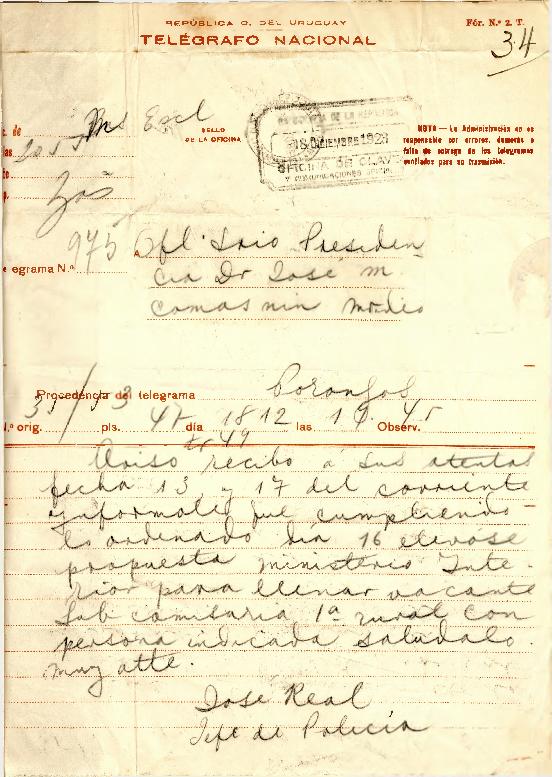 REPÚBLICA O. DEL URUGUAY
TELÉGRAFO NACIONAL
Fór. N.º 2. T.
34
SELLO
DE LA OFICINA
DE LA REPUBLICA
18 DICIEMBRE 192
OFICINA DE CLAVE
Y COMUNICACIONES
NOTA — La Administración no es
responsable por errores, demoras o
falta de entrega de los telegramas
confiados para su trasmisión.
egrama N.º 975 A Ofl. Srio Presiden
cia Dr José M.
Comas nin Mvdeo
Procedencia del telegrama Porongos
.º orig. pls. 47 día 1812 las 19.45 Observ.
Aviso recibo á sus atentas
fecha 13 y 17 del corriente
informole que cumpliendo
lo ordenado dia 16 elevóse
propuesta ministerio Inte-
rior para llenar vacante
Sub comisaria 1ª rural con
persona indicada saludalo
muy atte.
José Real
Jefe de Policía